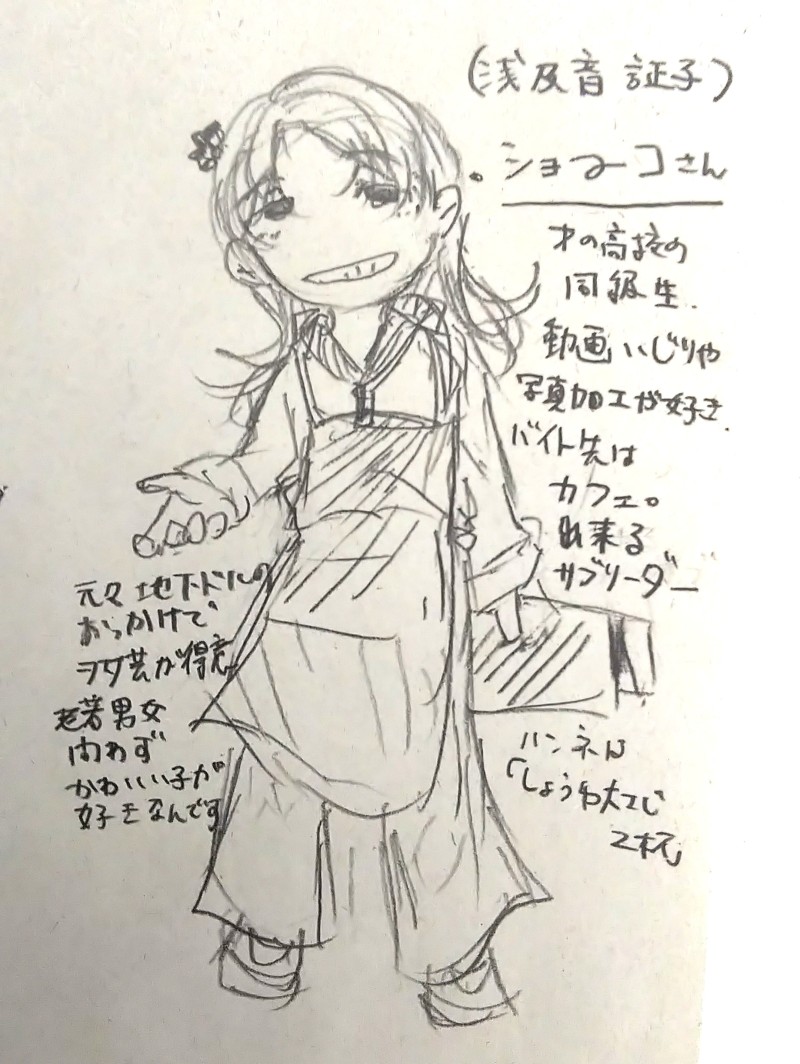 (浅及音 証子)
・ショーコさん
才の高校の
同級生.
動画いじりや
写真加工が好き.
バイト先は
カフェ。
出来る
サブリーダー
元々地下ドルの
おっかけで
ヲタ芸が得意
老若男女
問わず
かわいい子が
好きなんです
ハンネは
「しょうゆ大さじ
2杯」